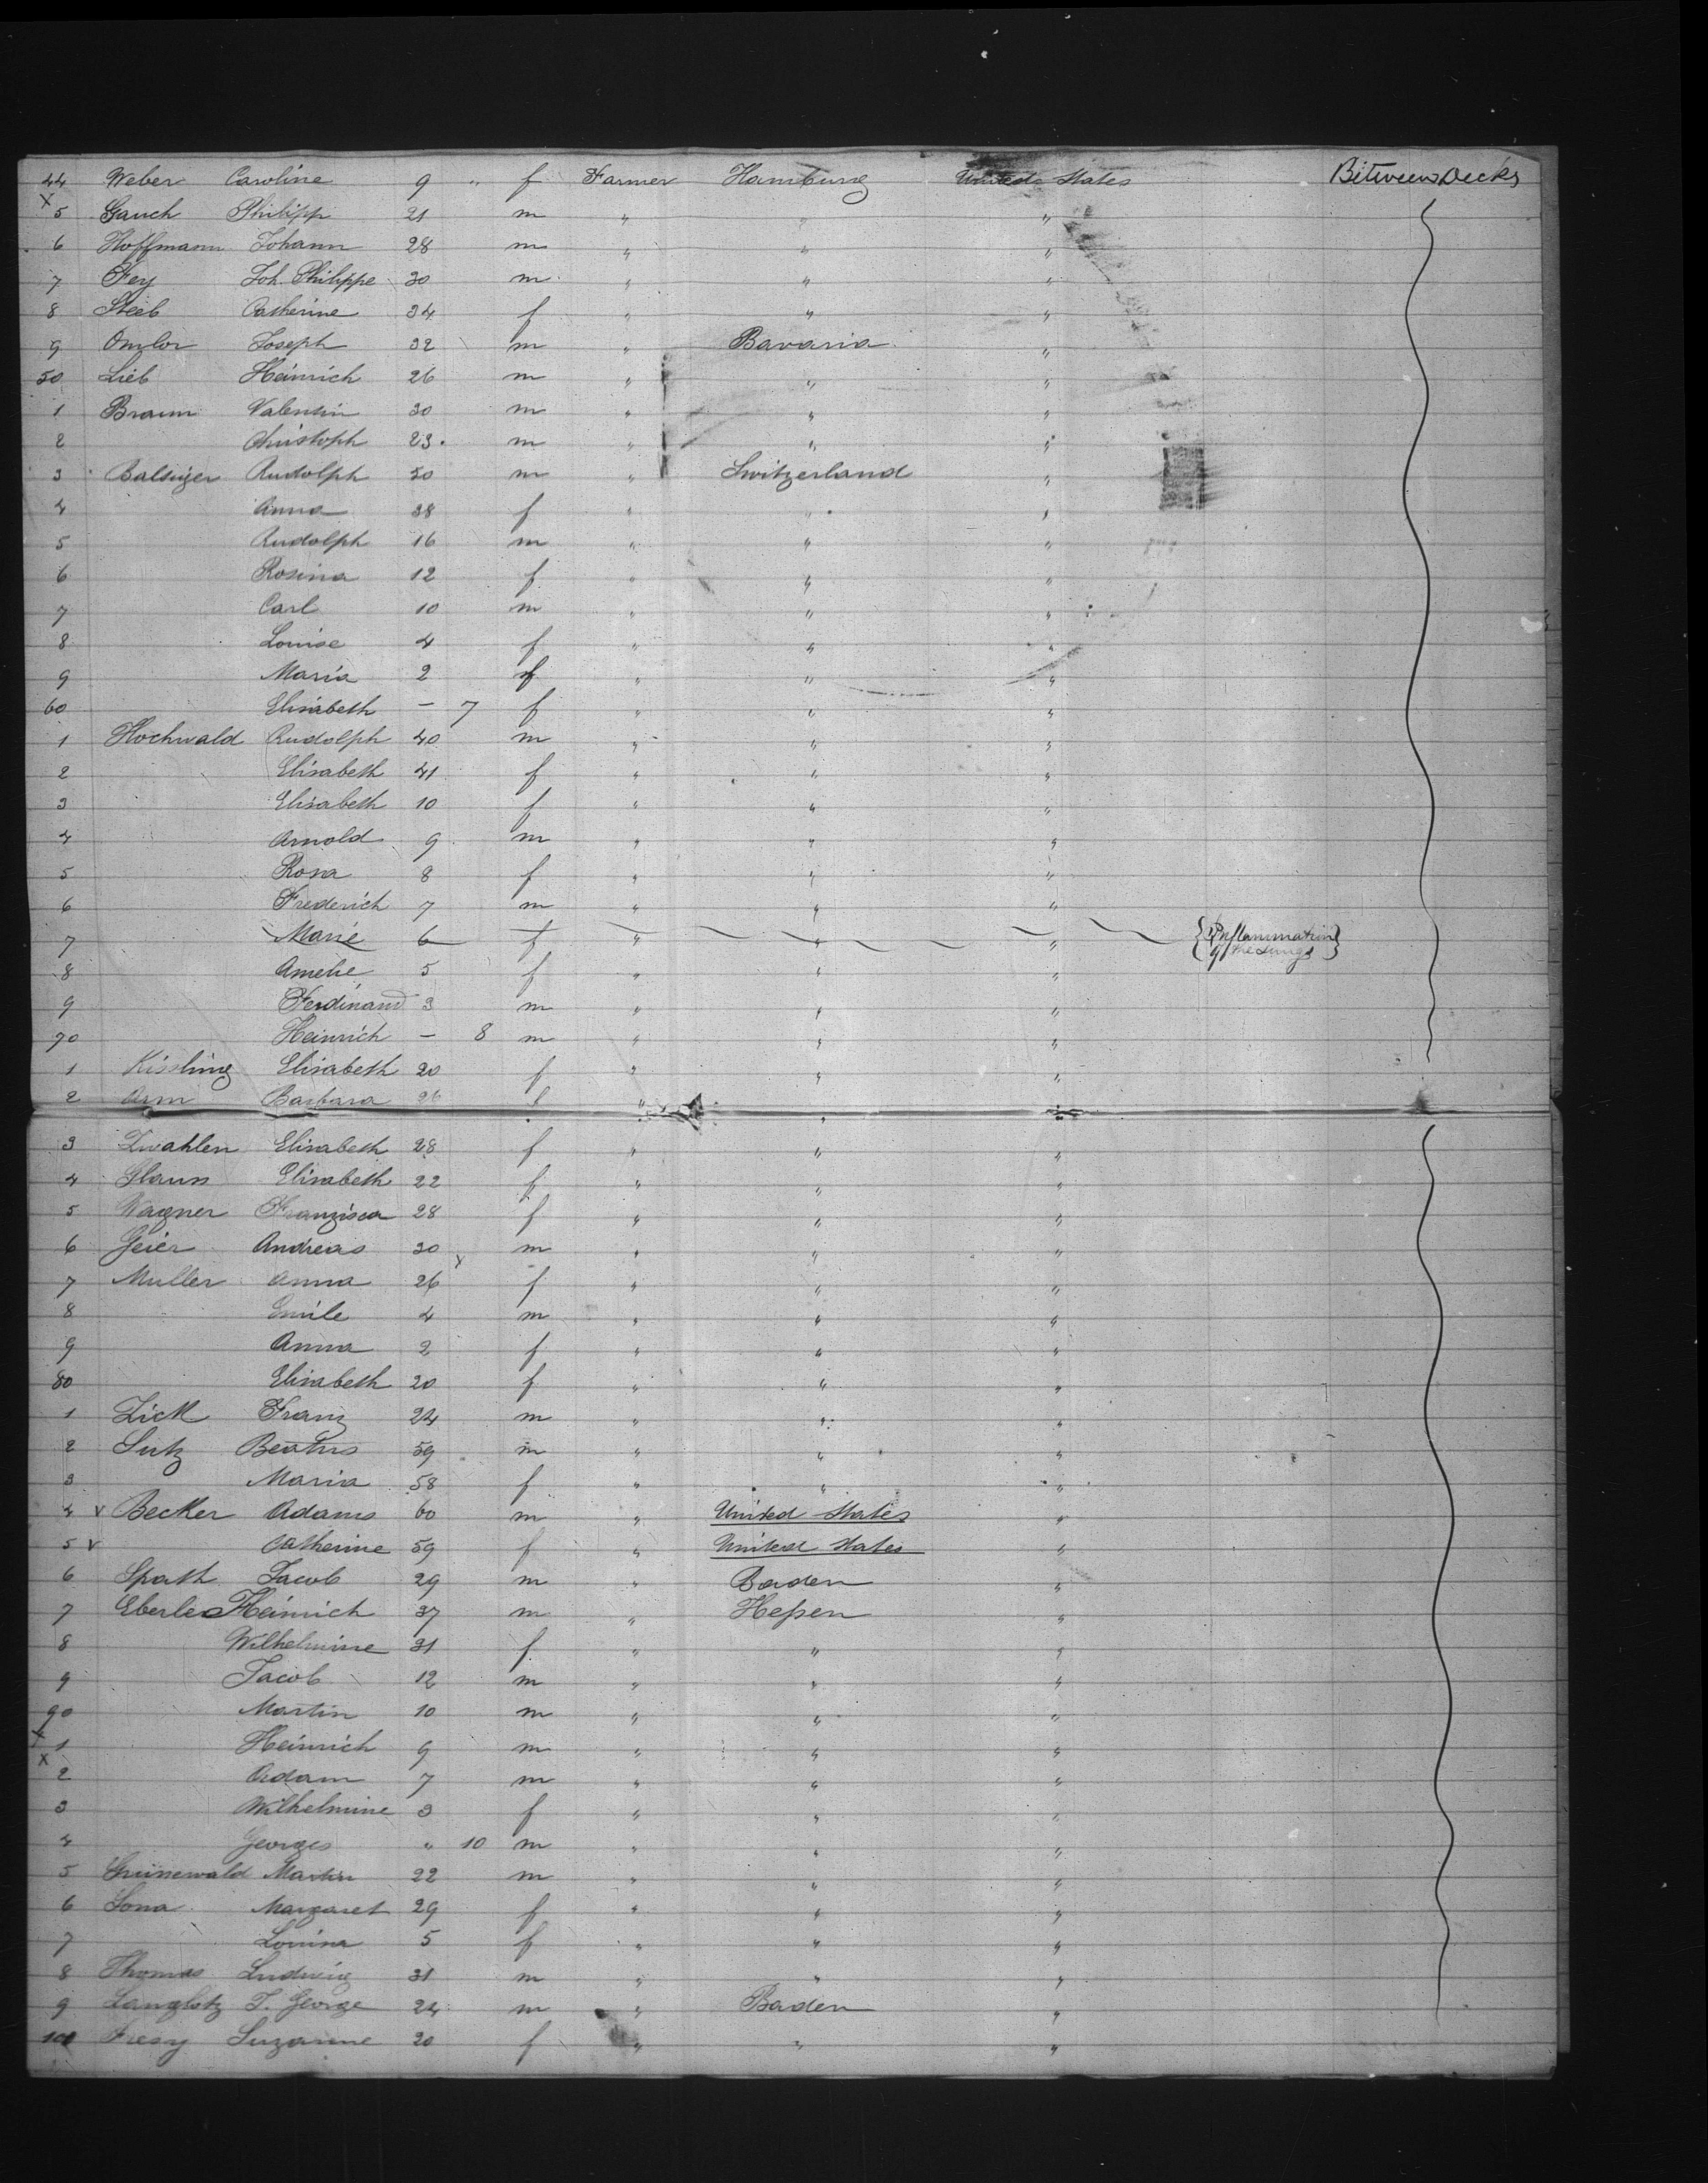 44 Weber Caroline 9 " f Farmer Hamburg United States Between Decks
x 5 Gauch Philipp 21 m " " "
6 Hoffmann Johann 28 m " " "
7 Fey Joh. Philippe 30 m " " "
8 Steeb Catherine 34 f " " "
9 Omlor Joseph 32 m " Bavaria "
50 Lieb Heinrich 26 m " " "
1 Braun Valentin 30 m " " "
2 Christoph 23 m " " "
3 Balsiger Rudolph 50 m " Switzerland "
4 Anna 38 f " " "
5 Rudolph 16 m " " "
6 Rosina 12 f " " "
7 Carl 10 m " " "
8 Louise 4 f " " "
9 Maria 2 f " " "
60 Elisabeth – 7 f " " "
1 Hochwald Rudolph 40 m " " "
2 Elisabeth 41 f " " "
3 Elisabeth 10 f " " "
4 Arnold 9 m " " "
5 Rosa 8 f " " "
6 Frederich 7 m " " "
7 Marie 6 f " " " { Inflammation of the Lungs }
8 Amelie 5 f " " "
9 Ferdinand 3 m " " "
70 Heinrich – 8 m " " "
1 Kissling Elisabeth 20 f " " "
2 Arm Barbara 26 f " " "
3 Zwahlen Elisabeth 28 f " " "
4 Glaus Elisabeth 22 f " " "
5 Wagner Franzisca 28 f " " "
6 Geier Andreas 30 m " " "
7 Muller Anna 26 f " " "
8 Emile 4 m " " "
9 Anna 2 f " " "
80 Elisabeth 20 f " " "
1 Zick Franz 24 m " " "
2 Sutz Beatus 59 m " " "
3 Maria 58 f " " "
4 v Becker Adams 60 m " United States "
5 v Catherine 59 f " United States "
6 Spath Jacob 29 m " Baden "
7 Eberle Heinrich 37 m " Heßen "
8 Wilhelmine 31 f " " "
9 Jacob 12 m " " "
90 Martin 10 m " " "
x 1 Heinrich 9 m " " "
x 2 Adam 7 m " " "
3 Wilhelmine 3 f " " "
4 Georges " 10 m " " "
5 Grünewald Martin 22 m " " "
6 Sona Margaret 29 f " " "
7 Louisa 5 f " " "
8 Thomas Ludwig 31 m " " "
9 Langlotz J. George 24 m " Baden "
100 Suzanne 20 f " " "